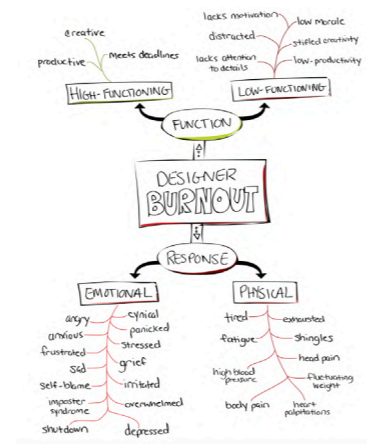 creative
productive
meets deadlines
HIGH-FUNCTIONING
lacks motivation
low morale
distracted
stifled creativity
lacks attention
to details
low-productivity
LOW-FUNCTIONING
FUNCTION
DESIGNER
BURNOUT
RESPONSE
EMOTIONAL
angry
cynical
anxious
panicked
frustrated
stressed
sad
grief
self-blame
irritated
imposter
syndrome
overwhelmed
shutdown
depressed
PHYSICAL
tired
exhausted
fatigue
shingles
head pain
high blood
pressure
fluctuating
weight
body pain
heart
palpitations